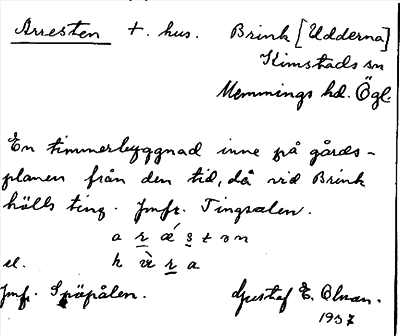 Arresten t. hus. Brink [Udderna]
Kimstads sn
Memmings hd. Ögl.
En timmerbyggnad inne på gårds-
planen från den tid, då vid Brink
hölls ting. Jmfr. Tingsalen.
a r ǽ s t ə n
el. k ǜ r a
Jmfr. Spöpålen. Gustaf E. Olsson.
1937